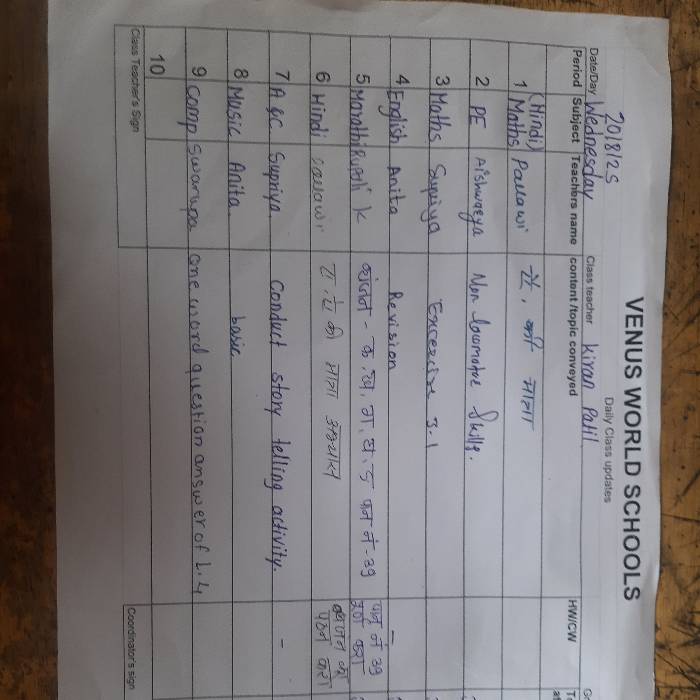 VENUS WORLD SCHOOLS
Daily Class updates
20/8/25
Date/Day Wednesday Class teacher Kiran Patil
Period Subject Teachers name content /topic conveyed HW/CW
(Hindi)
1 Maths Pallawi की मात्रा
2 PE Aishwarya Non locomotive Skills.
3 Maths Supriya Excersise 3.1
4 English Anita Revision –
5 Marathi Rupali K व्यंजन - क, ख, ग, घ, ङ पान नं - 39 पान नं 39 पूर्ण करा
6 Hindi Pallawi की मात्रा अभ्यास व्यंजन का पठन करा
7 A&C Supriya Conduct story telling activity. -
8 Music Anita basic
9 Comp Swarupa one word question answer of L.4
10
Class Teacher's Sign Coordinator's sign